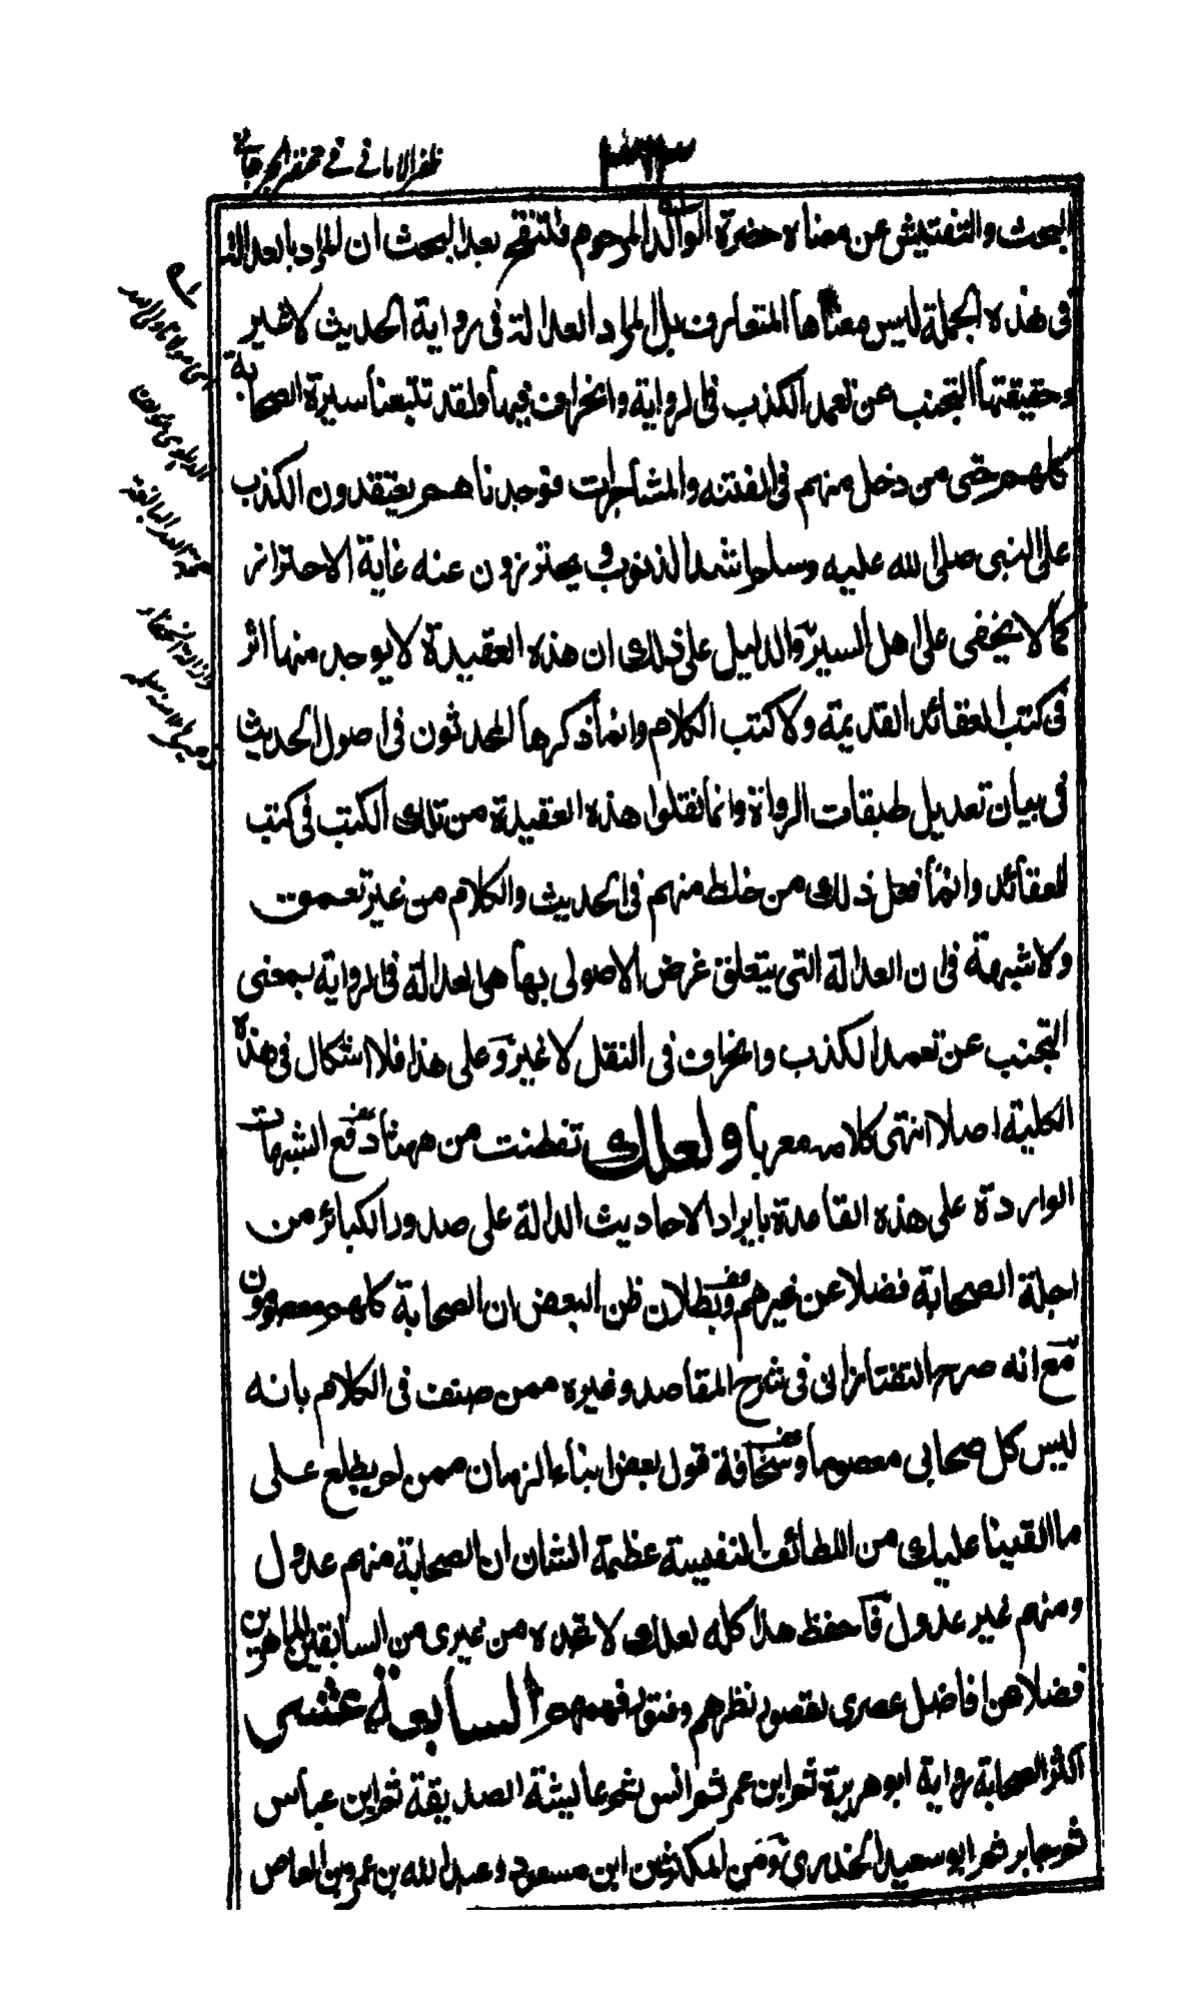 ظفر الامانى فى مختصر الجرجانى
البحث والتفتيش عن معناه حضرة الوالد المرحوم فلتنقح بعد البحث ان المراد بالعدالة
فى هذه الجملة ليس معناها المتعارف بل المراد العدالة فى رواية الحديث لا غير
وحقيقتها التجنب عن تعمد الكذب فى الرواية وانحراف فيها ولقد تتبعنا سيرة الصحابة
كلهم حتى من دخل منهم فى الفتنة والمشاجرات فوجدناهم يعتقدون الكذب
على النبى صلى الله عليه وسلم اشد الذنوب ويحترزون عنه غاية الاحتراز
كما لا يخفى على اهل السير والدليل على ذلك ان هذه العقيدة لا يوجد منها اثر
فى كتب العقائد القديمة ولا كتب الكلام وانما ذكرها المحدثون فى اصول الحديث
فى بيان تعديل طبقات الرواة وانما نقلوا هذه العقيدة من تلك الكتب فى كتب
العقائد وانما فعل ذلك من خلط منهم فى الحديث والكلام من غير تعمق
ولا شبهة فى ان العدالة التى يتعلق غرض الاصولى بها هى العدالة فى الرواية بمعنى
التجنب عن تعمد الكذب وانحراف فى النقل لا غير وعلى هذا فلا اشكال فى هذه
الكلية اصلا انتهى كلامه معربا ولعلك تفطنت من ههنا دفع الشبهات
الواردة على هذه القاعدة بايراد الاحاديث الدالة على صدور الكبائر من
اجلة الصحابة فضلا عن غيرهم وبطلان ظن البعض ان الصحابة كلهم معصومون
مع انه صرح التفتازانى فى شرح المقاصد وغيره ممن صنف فى الكلام بانه
ليس كل صحابى معصوما وسخافة قول بعض ابناء الزمان ممن لم يطلع على
ما القينا عليك من اللطائف النفيسة عظيمة الشان ان الصحابة منهم عدول
ومنهم غير عدول فاحفظ هذا كله لعلك لا تجده من غيرى من السابقين الماهرين
فضلا عن افاضل عصرى لقصور نظرهم وفتور فهمهم السابعة عشر
اكثر الصحابة رواية ابو هريرة ثم ابن عمر ثم انس ثم عائشة الصديقة ثم ابن عباس
ثم جابر ثم ابو سعيد الخدرى ومن المكثرين ابن مسعود وعبد الله بن عمرو بن العاص